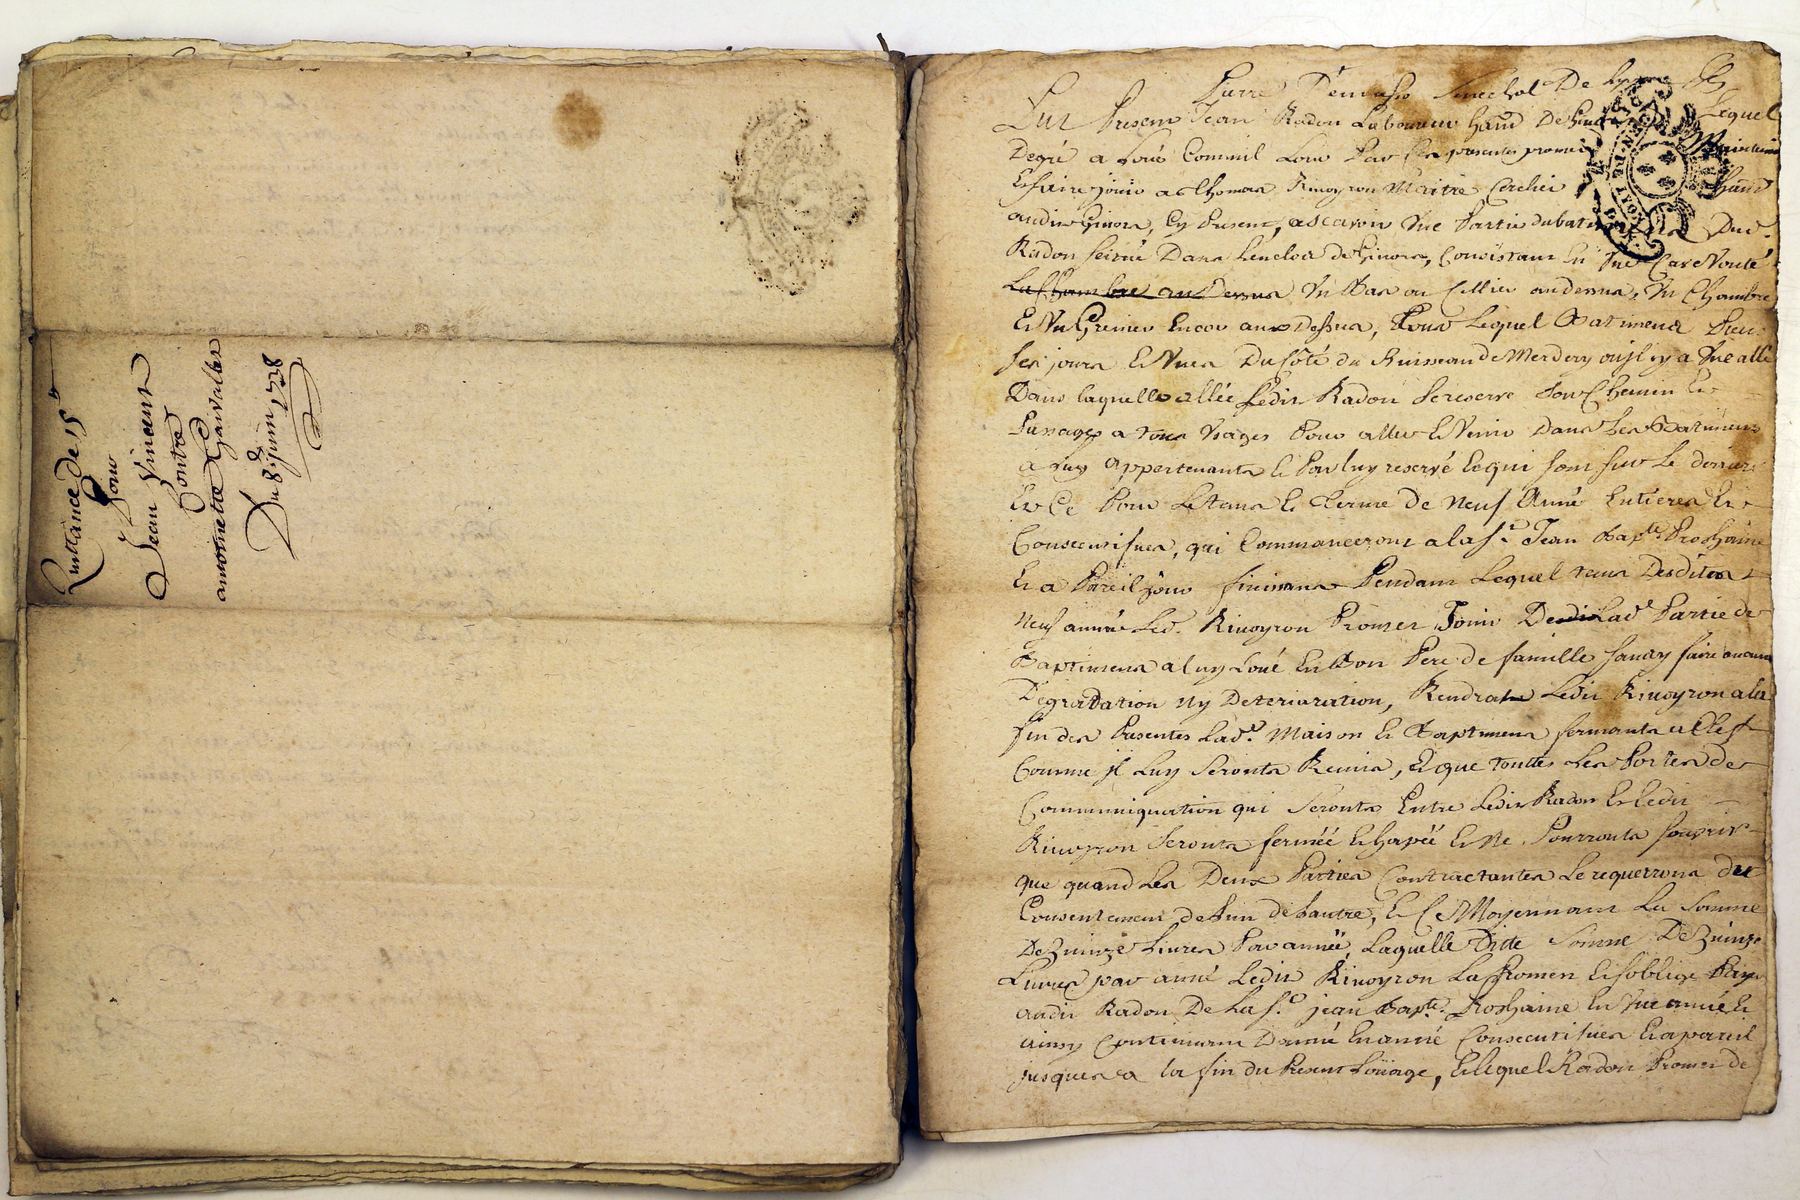 Quittance de 15 ₶
Pour
Jean Vincent
Contre
antoinette Gayvallet
Du 8e. juin 1728
De
Fut Present Jean Radon Laboureur hānt De Lequel
Degré a Loüé Comme il Loüe Par Ces presentes promet
Et faire jouir a thomas Rivoyron Maitre hānt
audit Ginors, Cy Present, ascavoir Vne Partie du Dud.
Radon Scitué Dans Lenclos de Ginors, Consistant En Vne Cave Voute
La Chambre au Dessus Vn Bas ou Cellier au dessus, Vn Chambre
Et Vn Grenier Encor aux Dessus, Pour Lequel Batiment Pren
ses jours Et Vues Du Côté du Ruisseau de Merdery ou jl y a Vne allé
Dans laquelle allée Ledit Radon Se reserve Son Chemin Et
Passages a tous Vsages Pour aller Et Venir Dans Les Batiments
a Luy appertenants Et Par luy reservé Et qui sont sur Le derrier
Et Ce Pour Le tems Et Terme de Neuf Anné Entieres Et
Consecutifves, qui Commanceront a la St. Jean Bapte. Proshaine
Et a Pareil jour finissant Pendant Lequel tems Desdites
Neuf année Led. Rivoyron Promet Jouir De Lad. Partie de
Baptiments a luy Loué En Bon Pere de famille sans y faire aucune
Degradation ny Deteriaration, Rendra Ledit Rivoyron a la
fin des Presentes Lade. Maison Et Baptiments fermants a Clef
Comme jl Luy Seronts Remis, Et que toutes Les Portes de
Communiquation qui Seronts Entre Ledit Radon Et ledit
Rivoyron Seronts fermée Et hapée Et Ne Pourronts souvrir
que quand Les Deux Parties Contractantes Le requerrons de
Consentement de Lun de Lautre, Et Ce Moyennant La Somme
De quinze Livres Par année, Laquelle Ditte Somme De quinze
Livres par anné Ledit Rivoyron La Promet Et soblige Payer
audit Radon De La St. jean Bapte. Proshaine En Vne année Et
ainsy Continuant Danné En anné Consecutifves Et a pareil
jusques a la fin du Present Loüage, Et lequel Radon Promet de